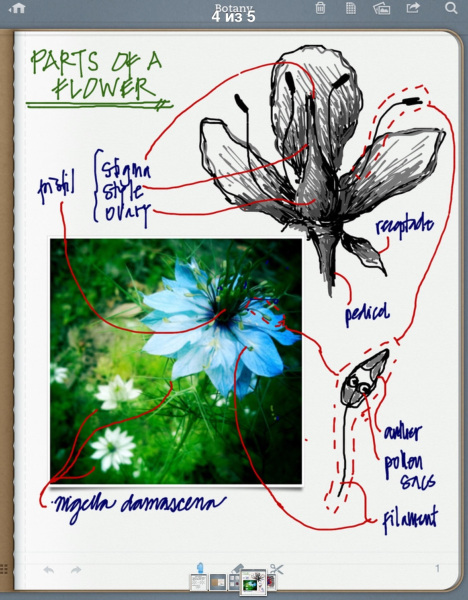 Botany
4 из 5
PARTS OF A
FLOWER
pistil
stigma
style
ovary
receptacle
pedicel
anther
pollen
sacs
filament
nigella damascena
1